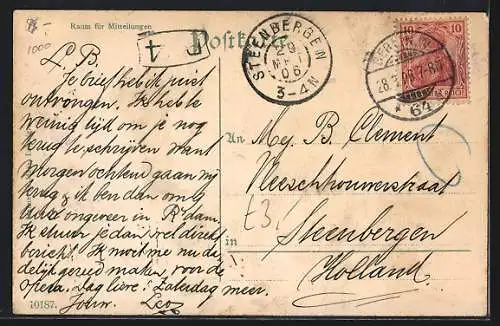 Raum für Mitteilungen
Postkarte
L. B.
Je brief heb ik juist
ontvangen. Ik heb te
weinig tijd om je nog
terug te schrijven want
Morgen ochtend gaan wij
terug & ik ben dan om 9
uur ongeveer in R'dam.
Ik stuur je dan wel direct
bericht. Ik moet me nu de
delijk gereed maken voor de
opera. Dag lieve! Zaterdag meer,
Jouw.
10187.
STEENBERGEN
3-4N
10 10
BERLIN W
28.3.06. 7-8
* 64
An
Mej. B. Clement
Veeschhouwerstraat
in
Steenbergen
Holland.
t3.
1000